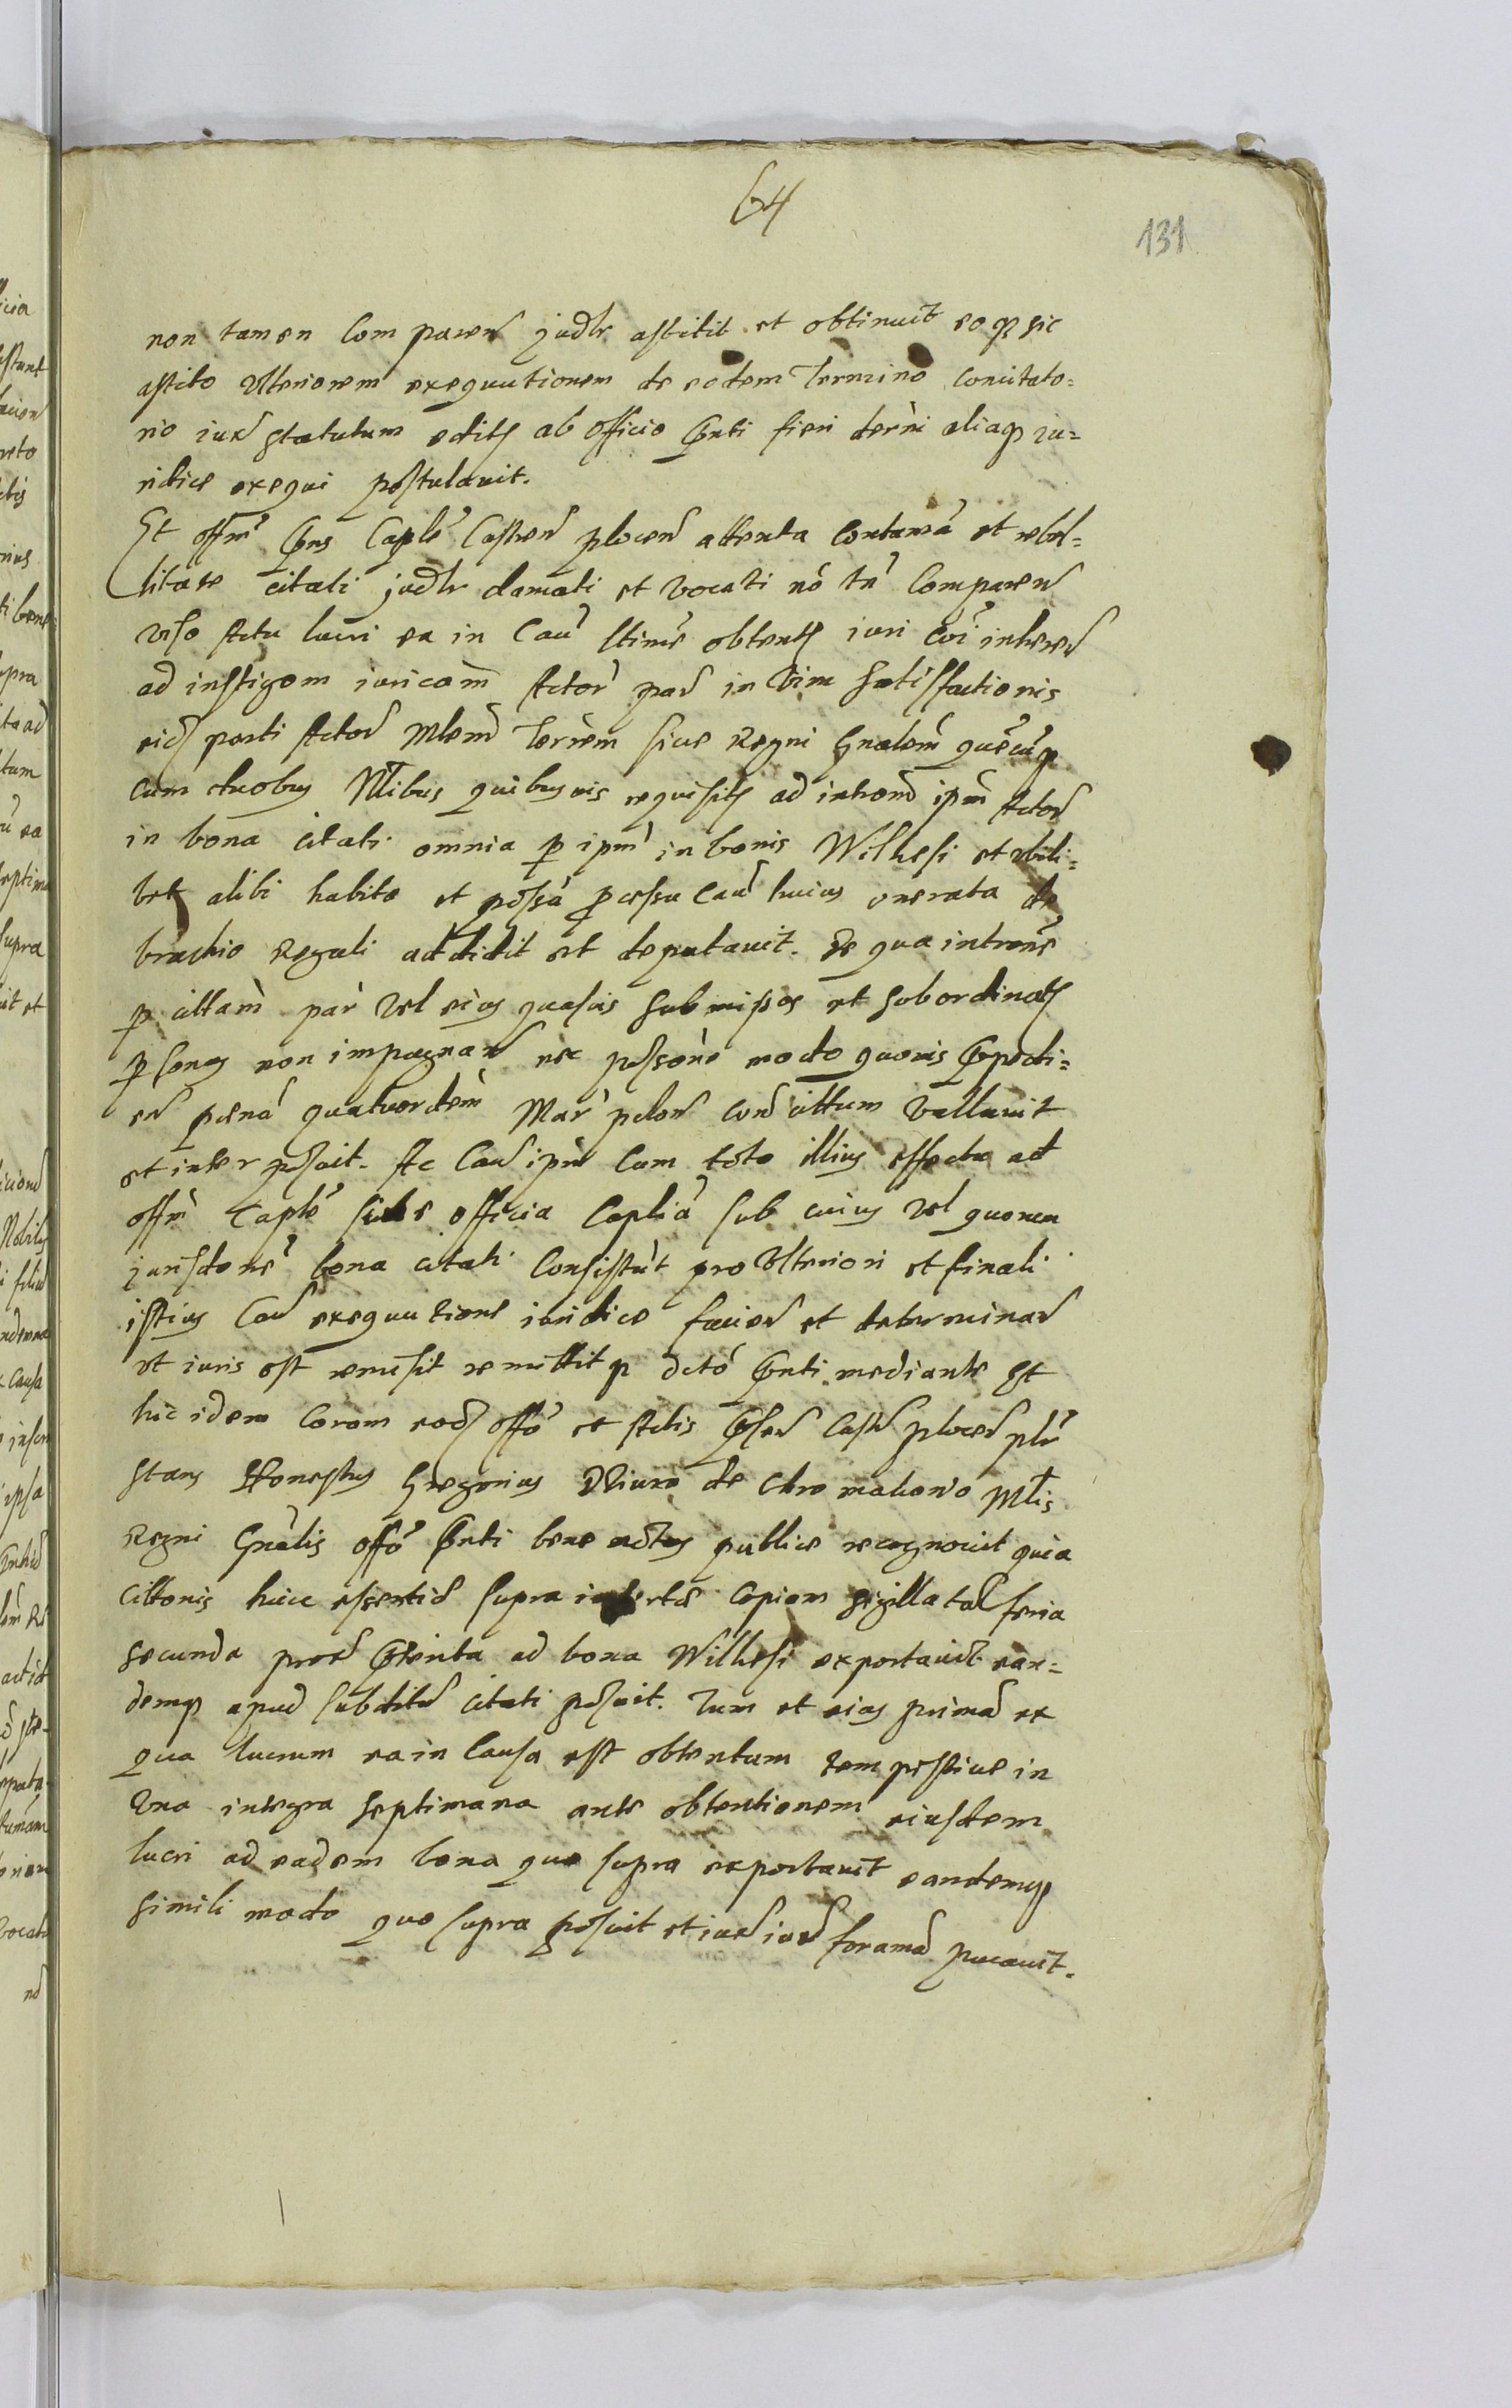 64
131
non tamen comparen judlr astitit et obtinuit eoq sic
astito ulteriorem exequutionem de eodem termino concitato=
rio iux statutum editu ab officio pnti fieri derni aliaq iu=
ridice exequi postulavit.
Et offm pns Caple Castren plocen attenta contuma et rebel=
litate citati judlr clamati et vocati no tn comparen
viso actu lucri ea in cau obtent iuri coi inheren
ad instigom iuricam Actor par in vim satisfactionis
eid parti Actor Mlem Terrem sive Regni Gnalem quecuq
cum duobus Nlibus quibusvis requisit ad introm ipm Actor
in bona citati omnia p ipm in bonis Wilhesi et ubili=
bet alibi habita et possa pcessu cau huius onerata de
brachio Regali addidit et deputavit. De qua introne
p cittam par vel eius quasvis submissas et subordinat
psonas non impugnan nec possone modo quovis Expedi=
en poena quatuordem Mar pclon con cittum vallavit
et interposuit. Ac cau ipm cum toto illius effectu ad
offm Caple sive officia Caplia sub cuius vel quorum
jurisdone bona citati consistut pro ulteriori et finali
istius cau exequutione iuridice facien et determinan
ut iuris est remisit remittitq dcto pnti mediante Et
hic idem coram eod offo et Actis psen Castr plocen plr
stans Honestus Gregorius de Mlis
Regni Gnalis offo pnti bene notus publice recognovit quia
cittonis huic insertae supra copiam sigillatam feria
secunda prox pterita ad bona Wilhesi exportavit ean=
demq apud subditum citati posuit. Tum et eius primam ex
qua lucrum ea in causa est obtentum tempestive in
una integra septimana ante obtentionem eiusdem
lucri ad eadem bona quo supra exportavit eandemq
simili modo quo supra posuit et iux iur formam pucavit.